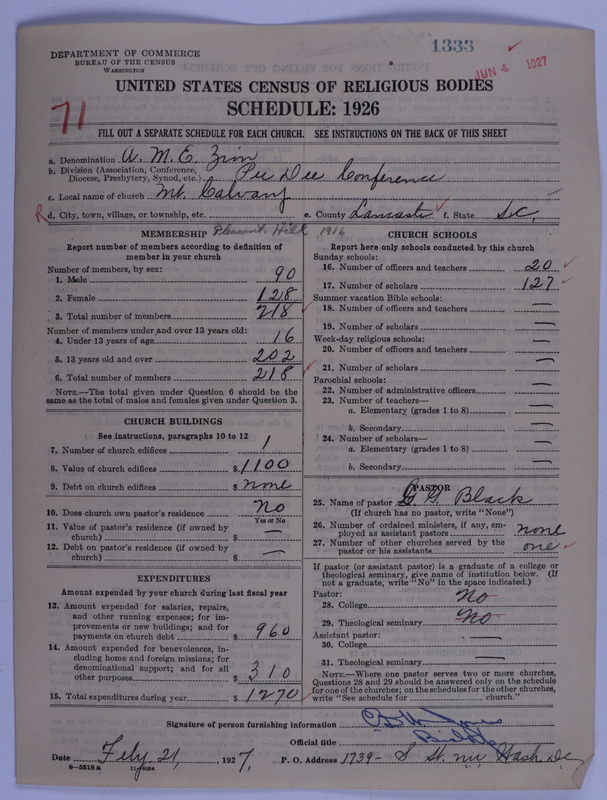 1333
JUN 4 1927
DEPARTMENT OF COMMERCE
BUREAU OF THE CENSUS
WASHINGTON
UNITED STATES CENSUS OF RELIGIOUS BODIES
SCHEDULE: 1926
71
FILL OUT A SEPARATE SCHEDULE FOR EACH CHURCH. SEE INSTRUCTIONS ON THE BACK OF THIS SHEET
a. Denomination A. M. E. Zion
b. Division (Association, Conference, Diocese, Presbytery, Synod, etc.) Pee Dee Conference
c. Local name of church Mt. Calvary
R d. City, town, village, or township, etc. e. County Lancaster f. State S.C.
Pleasant Hill 1916
MEMBERSHIP
Report number of members according to definition of
member in your church
Number of members, by sex:
1. Male 90
2. Female 128
3. Total number of members 218
Number of members under and over 13 years old:
4. Under 13 years of age 16
5. 13 years old and over 202
6. Total number of members 218
NOTE.—The total given under Question 6 should be
same as the total of males and females given under Question 3.
CHURCH BUILDINGS
See instructions, paragraphs 10 to 12
7. Number of church edifices 1
8. Value of church edifices $ 1100
9. Debt on church edifices $ none
10. Does church own pastor's residence No
Yes or No
11. Value of pastor's residence (if owned by
church) $ —
12. Debt on pastor's residence (if owned by
church) $ —
EXPENDITURES
Amount expended by your church during last fiscal year
13. Amount expended for salaries, repairs,
and other running expenses; for im-
provements or new buildings; and for
payments on church debt $ 960
14. Amount expended for benevolences, in-
cluding home and foreign missions; for
denominational support; and for all
other purposes $ 310
15. Total expenditures during year $ 1270
CHURCH SCHOOLS
Report here only schools conducted by this church
Sunday schools:
16. Number of officers and teachers 20
17. Number of scholars 127
Summer vacation Bible schools:
18. Number of officers and teachers —
19. Number of scholars —
Week-day religious schools:
20. Number of officers and teachers —
21. Number of scholars —
Parochial schools:
22. Number of administrative officers —
23. Number of teachers—
a. Elementary (grades 1 to 8) —
b. Secondary —
24. Number of scholars—
a. Elementary (grades 1 to 8) —
b. Secondary —
PASTOR
25. Name of pastor G. G. Black
(If church has no pastor, write "None")
26. Number of ordained ministers, if any, em-
ployed as assistant pastors none
27. Number of other churches served by the
pastor or his assistants one
If pastor (or assistant pastor) is a graduate of a college or
theological seminary, give name of institution below. (If
not a graduate, write "No" in the space indicated.)
Pastor:
28. College No
29. Theological seminary No
Assistant pastor:
30. College —
31. Theological seminary —
NOTE.—Where one pastor serves two or more churches,
Questions 28 and 29 should be answered only on the schedule
for one of the churches; on the schedules for the other churches,
write "See schedule for church."
Signature of person furnishing information
Official title Bishop
Date Feby. 21, 1927. P. O. Address 1739- S St. nw Wash. DC
8—5518 a